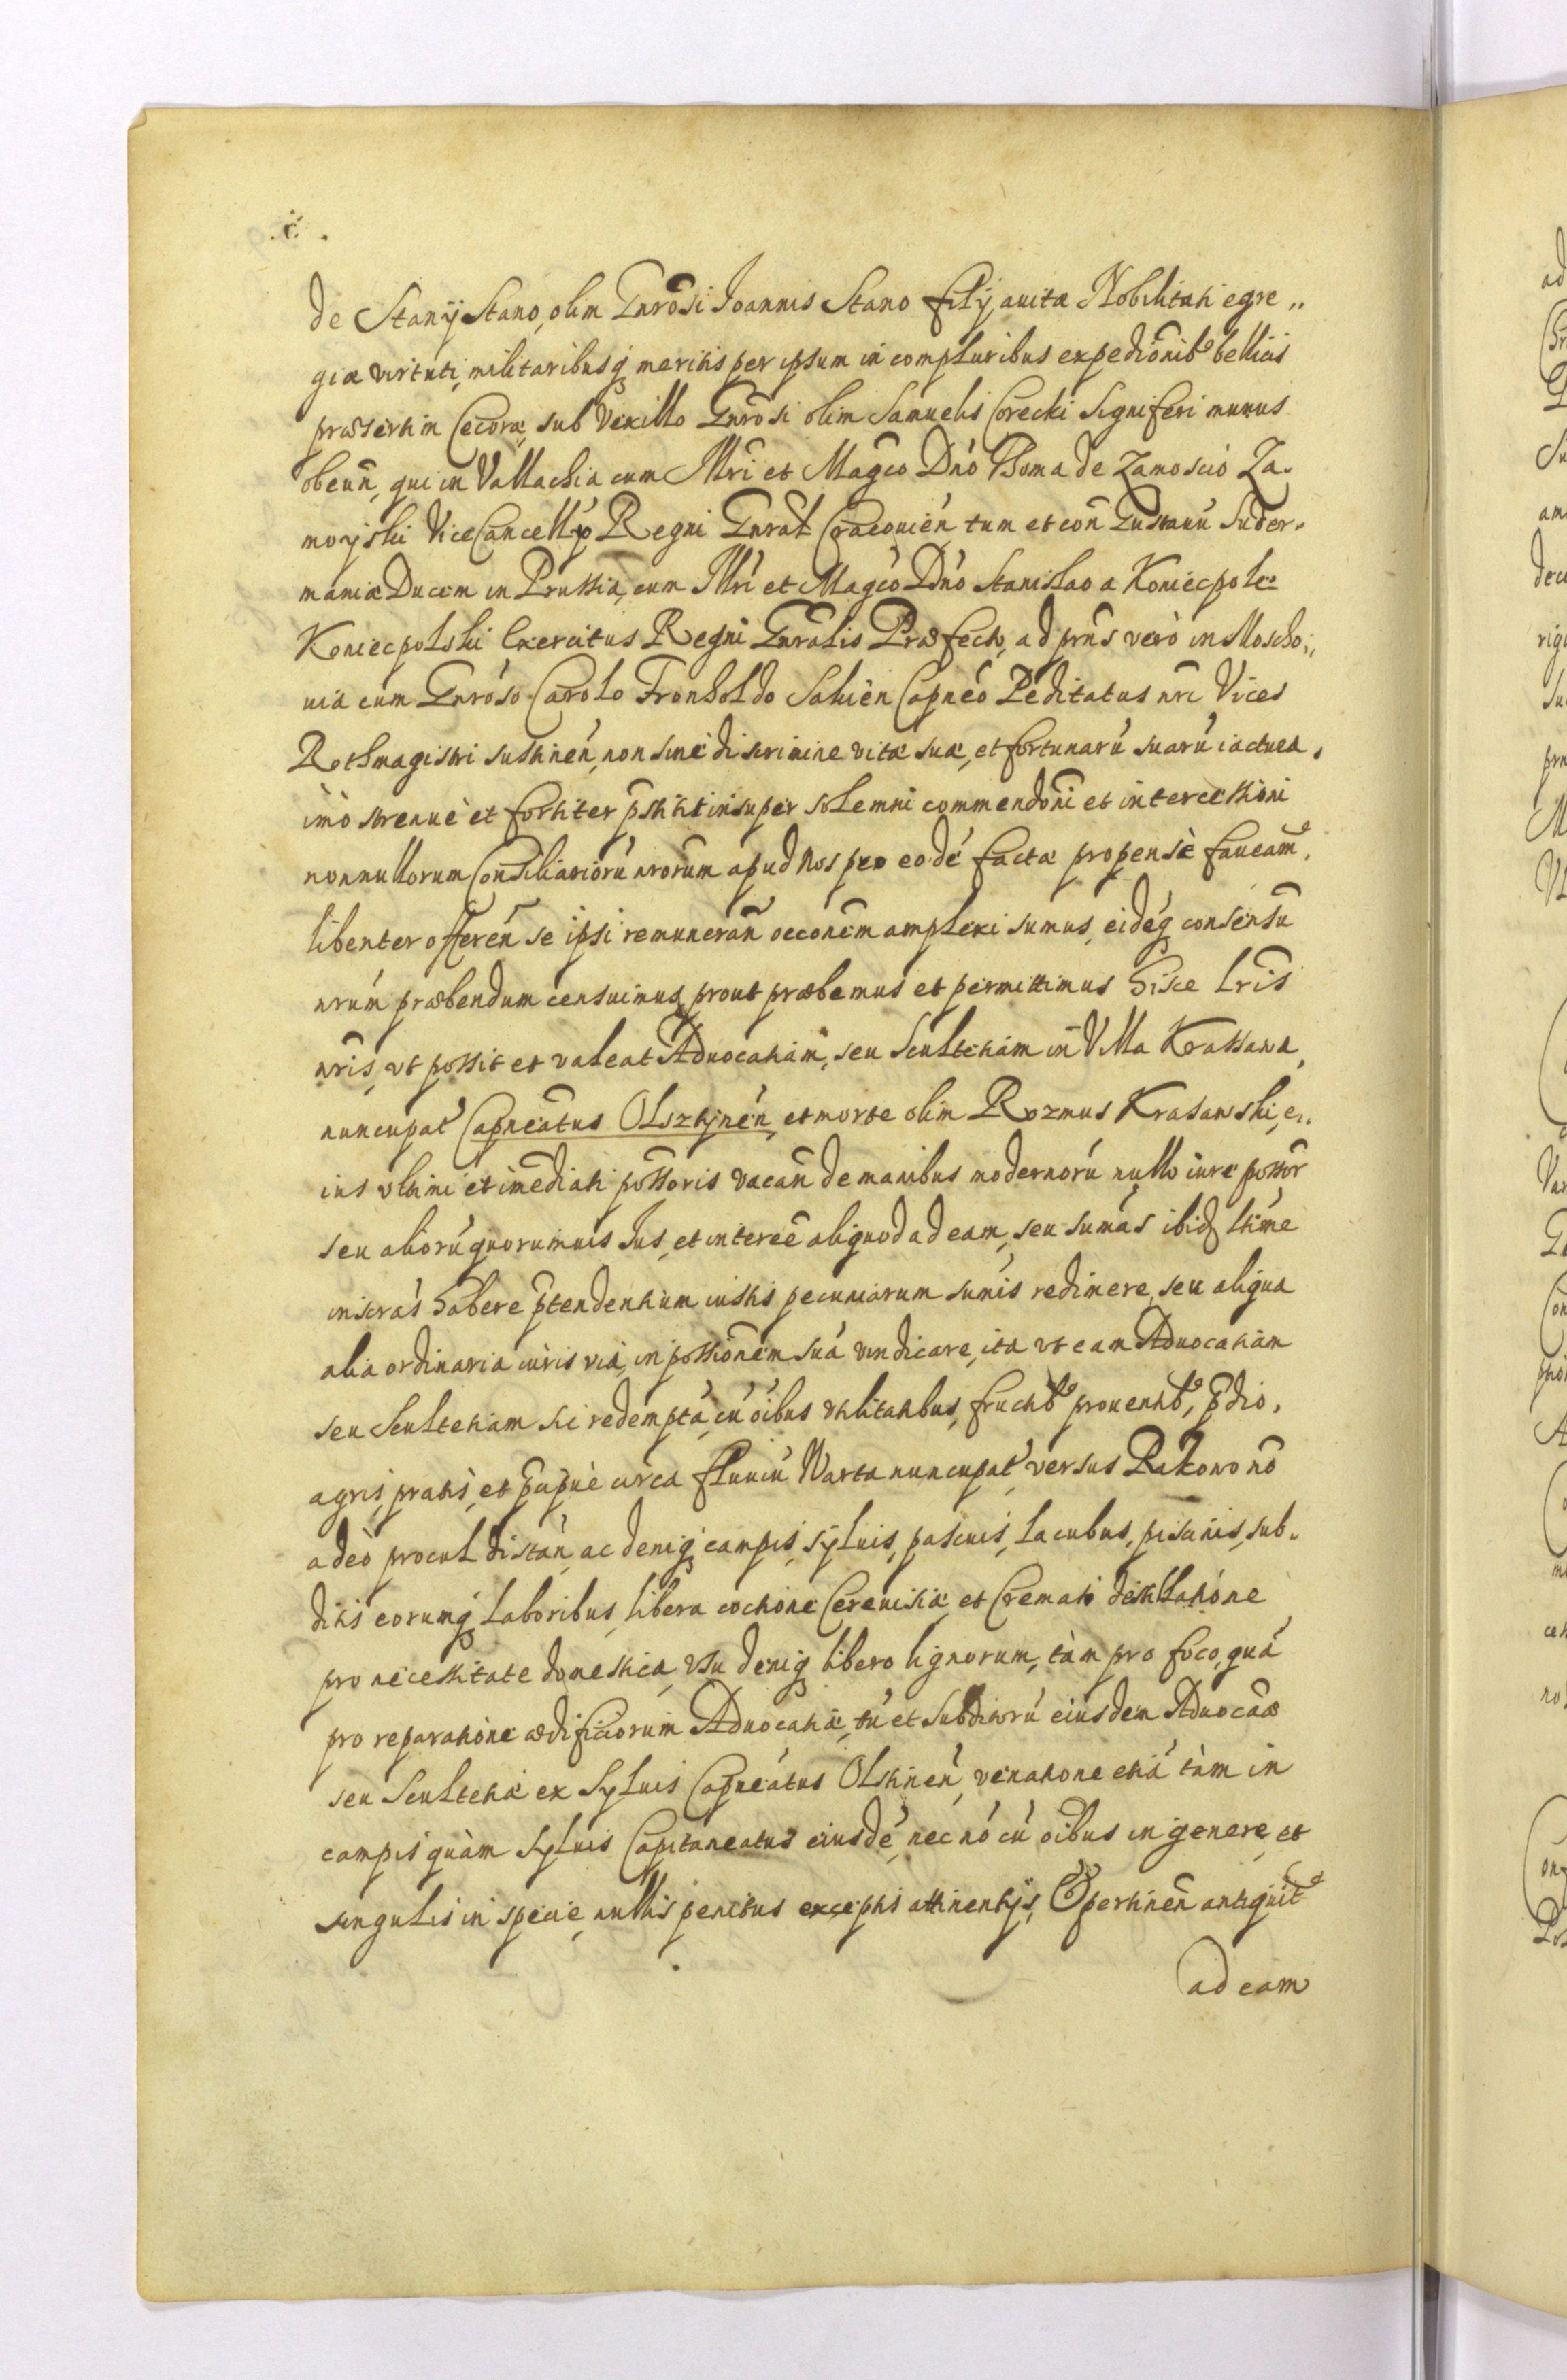 de Stany Stano, olim Gnrosi Joannis Stano filij auitæ Nobilitati egre„
giæ virtuti, militaribusq meritis per ipsum in compluribus expedionib9 bellicis
præsertim Cecoræ, sub Vexillo Gnrosi olim Samuelis Corecki Signiferi munus
obeun, qui in Vallachia cum Illri et Magco Dno Thoma de Zamoscio Za-
moyski ViceCancell Regni Gnral Cracouien tum et con Gustauu Suder-
maniæ Ducem in Prussia, cum Illri et Magco Dno Stanislao a Koniecpole
Koniecpolski Exercitus Regni Gnralis Præfecto, ad prns verò in Moscho„
uia cum Gnroso Carolo Fronholdo Capneo Peditatus nri Vices
Rothmagistri sustinen, non sine discrimine vitæ suæ, et fortunarú suarú iactura,
imò strenuè et fortiter pstitit insuper solemni commendoni et intercessioni
nonnullorum Consiliariorú nrorum apud Nos pro eodé factæ propensè faueam9,
libenter offeren se ipsi remuneran occonem amplexi sumus, eidéq consensu
nrúm præbendum censuimus, prout præbemus et permittimus hisce Lris
nris, vt possit et valeat Aduocatiam, seu Scultetiam in Villa Krassawa,
nuncupat Capneatus Olsztynén, et morte olim Rozmus Krasawski, e„
ius vltimi et imediati possoris vacan de manibus modernorú nullo iure possor
seu aliorú quorumuis Jus, et interee aliquod ad eam, seu sumás ibid ltime
inscras habere ptendentium iustis pecuniarum sumis redimere, seu aliqua
alia ordinaria iuris via, in possionem suá vindicare, ita vt eam Aduocatiam
seu Scultetiam sic redemptá, cú oibus vtilitatibus, fructib9 prouentib9, pdio,
agris, pratis, et pcipuè circa fluuiú Warta nuncupat versus Rakowo nó
adeò procul distán, ac deniq campis, syluis, pascuis, lacubus, piscinis, sub-
ditis eorumq laboribus, libera coctione Cereuisiæ et Cremati destillatione
pro necessitate domestica, vsu deniq libero lignorum, tàm pro foco, quá
pro reparatione ædificiorum Aduocatiæ, tú et Subditorú eiusdem Aduocaæ
seu Scultetiæ ex Syluis Capneátus Olstinén, venatione etiá tàm in
campis quàm syluis Capitaneatus eiusdé, nec nó cú oibus in genere, et
singulis in specie, nullis penitus exceptis attinentijs, pertinen antiquit9
ad eam